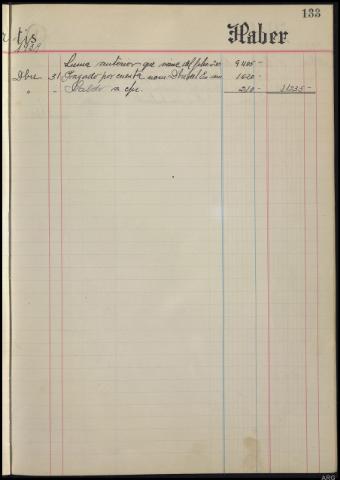 133
Haber
1939
Suma anterior que viene del folio 9405-
Dbre 31 Pagado por cuenta 1620-
" - Saldo a c/n. 210- 11235-
ARG